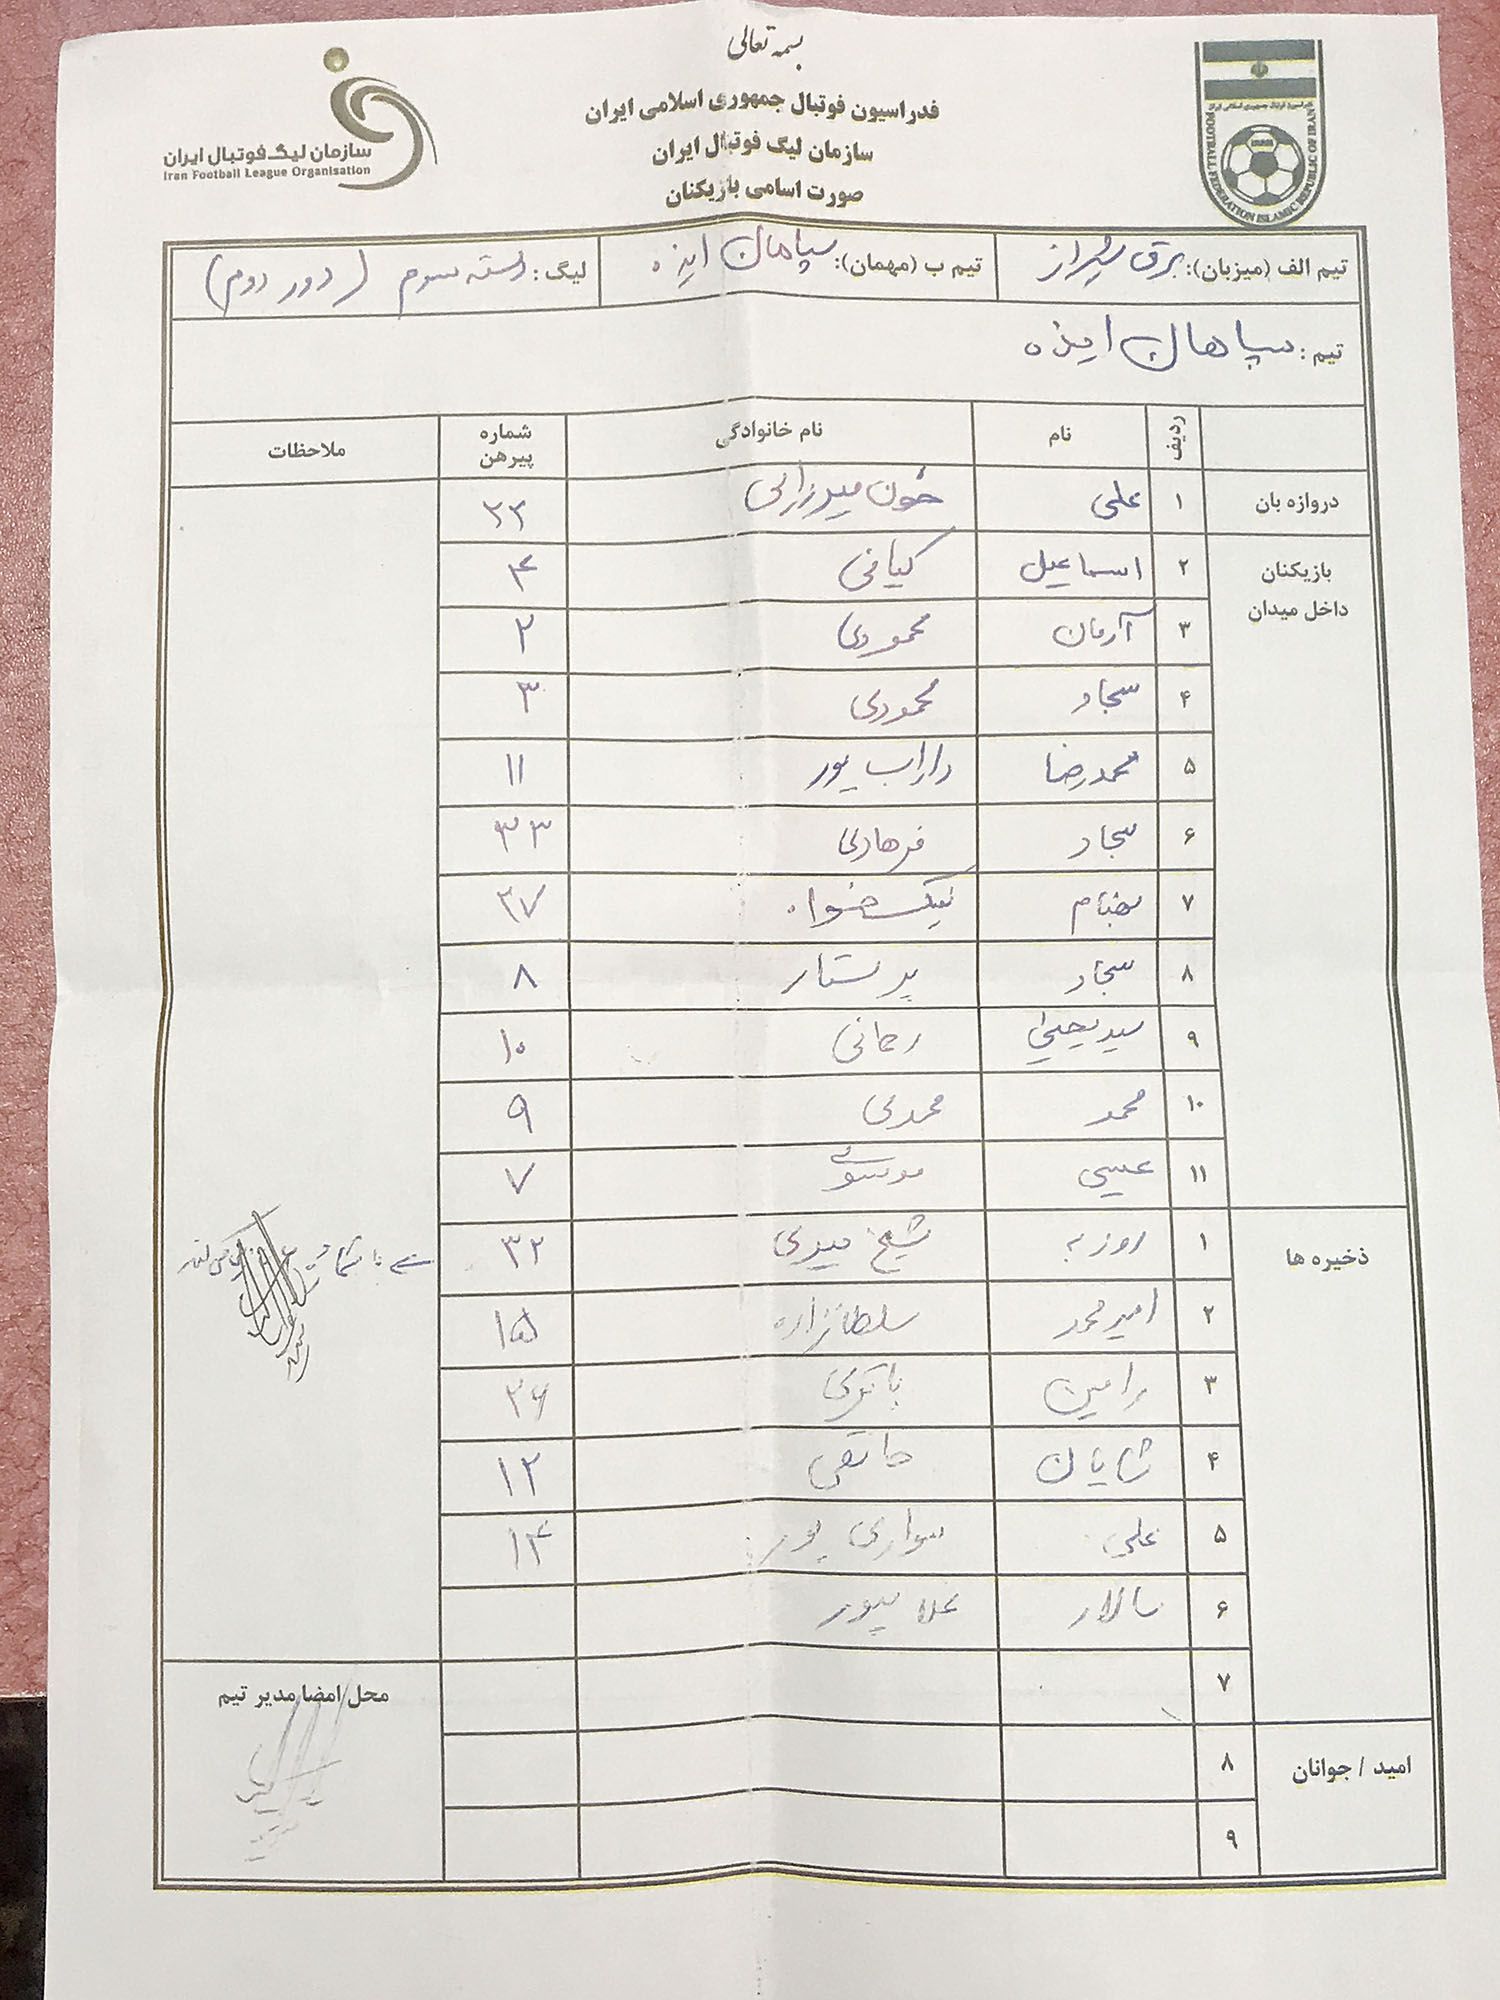 بسمه تعالی
فدراسیون فوتبال جمهوری اسلامی ایران
سازمان لیگ فوتبال ایران
صورت اسامی بازیکنان
سازمان لیگ فوتبال ایران
Iran Football League Organisation
FOOTBALL FEDERATION ISLAMIC REPUBLIC OF IRAN
تیم الف (میزبان): برق شیراز تیم ب (مهمان): سپاهان ایذه لیگ: دسته سوم (دور دوم)
تیم: سپاهان ایذه
ردیف نام نام خانوادگی شماره پیرهن ملاحظات
دروازه بان ۱ علی میرزایی ۲۲
بازیکنان داخل میدان ۲ اسماعیل کیانی ۴
۳ آرمان محمودی ۲
۴ سجاد محمودی ۳
۵ محمدرضا داراب پور ۱۱
۶ سجاد فرهادی ۳۳
۷ بهنام نیکخواه ۳۷
۸ سجاد پرستار ۸
۹ سید یحیی رحمانی ۱۰
۱۰ محمد محمدی ۹
۱۱ عیسی موسوی ۷
ذخیره ها ۱ روزبه شیخ میری ۳۲
۲ امیرمحمد سلطانزاده ۱۵
۳ رامین باقری ۳۶
۴ شایان ۱۲
۵ علی سواری پور ۱۴
۶ سالار
۷
امید / جوانان ۸
۹
محل امضا مدیر تیم